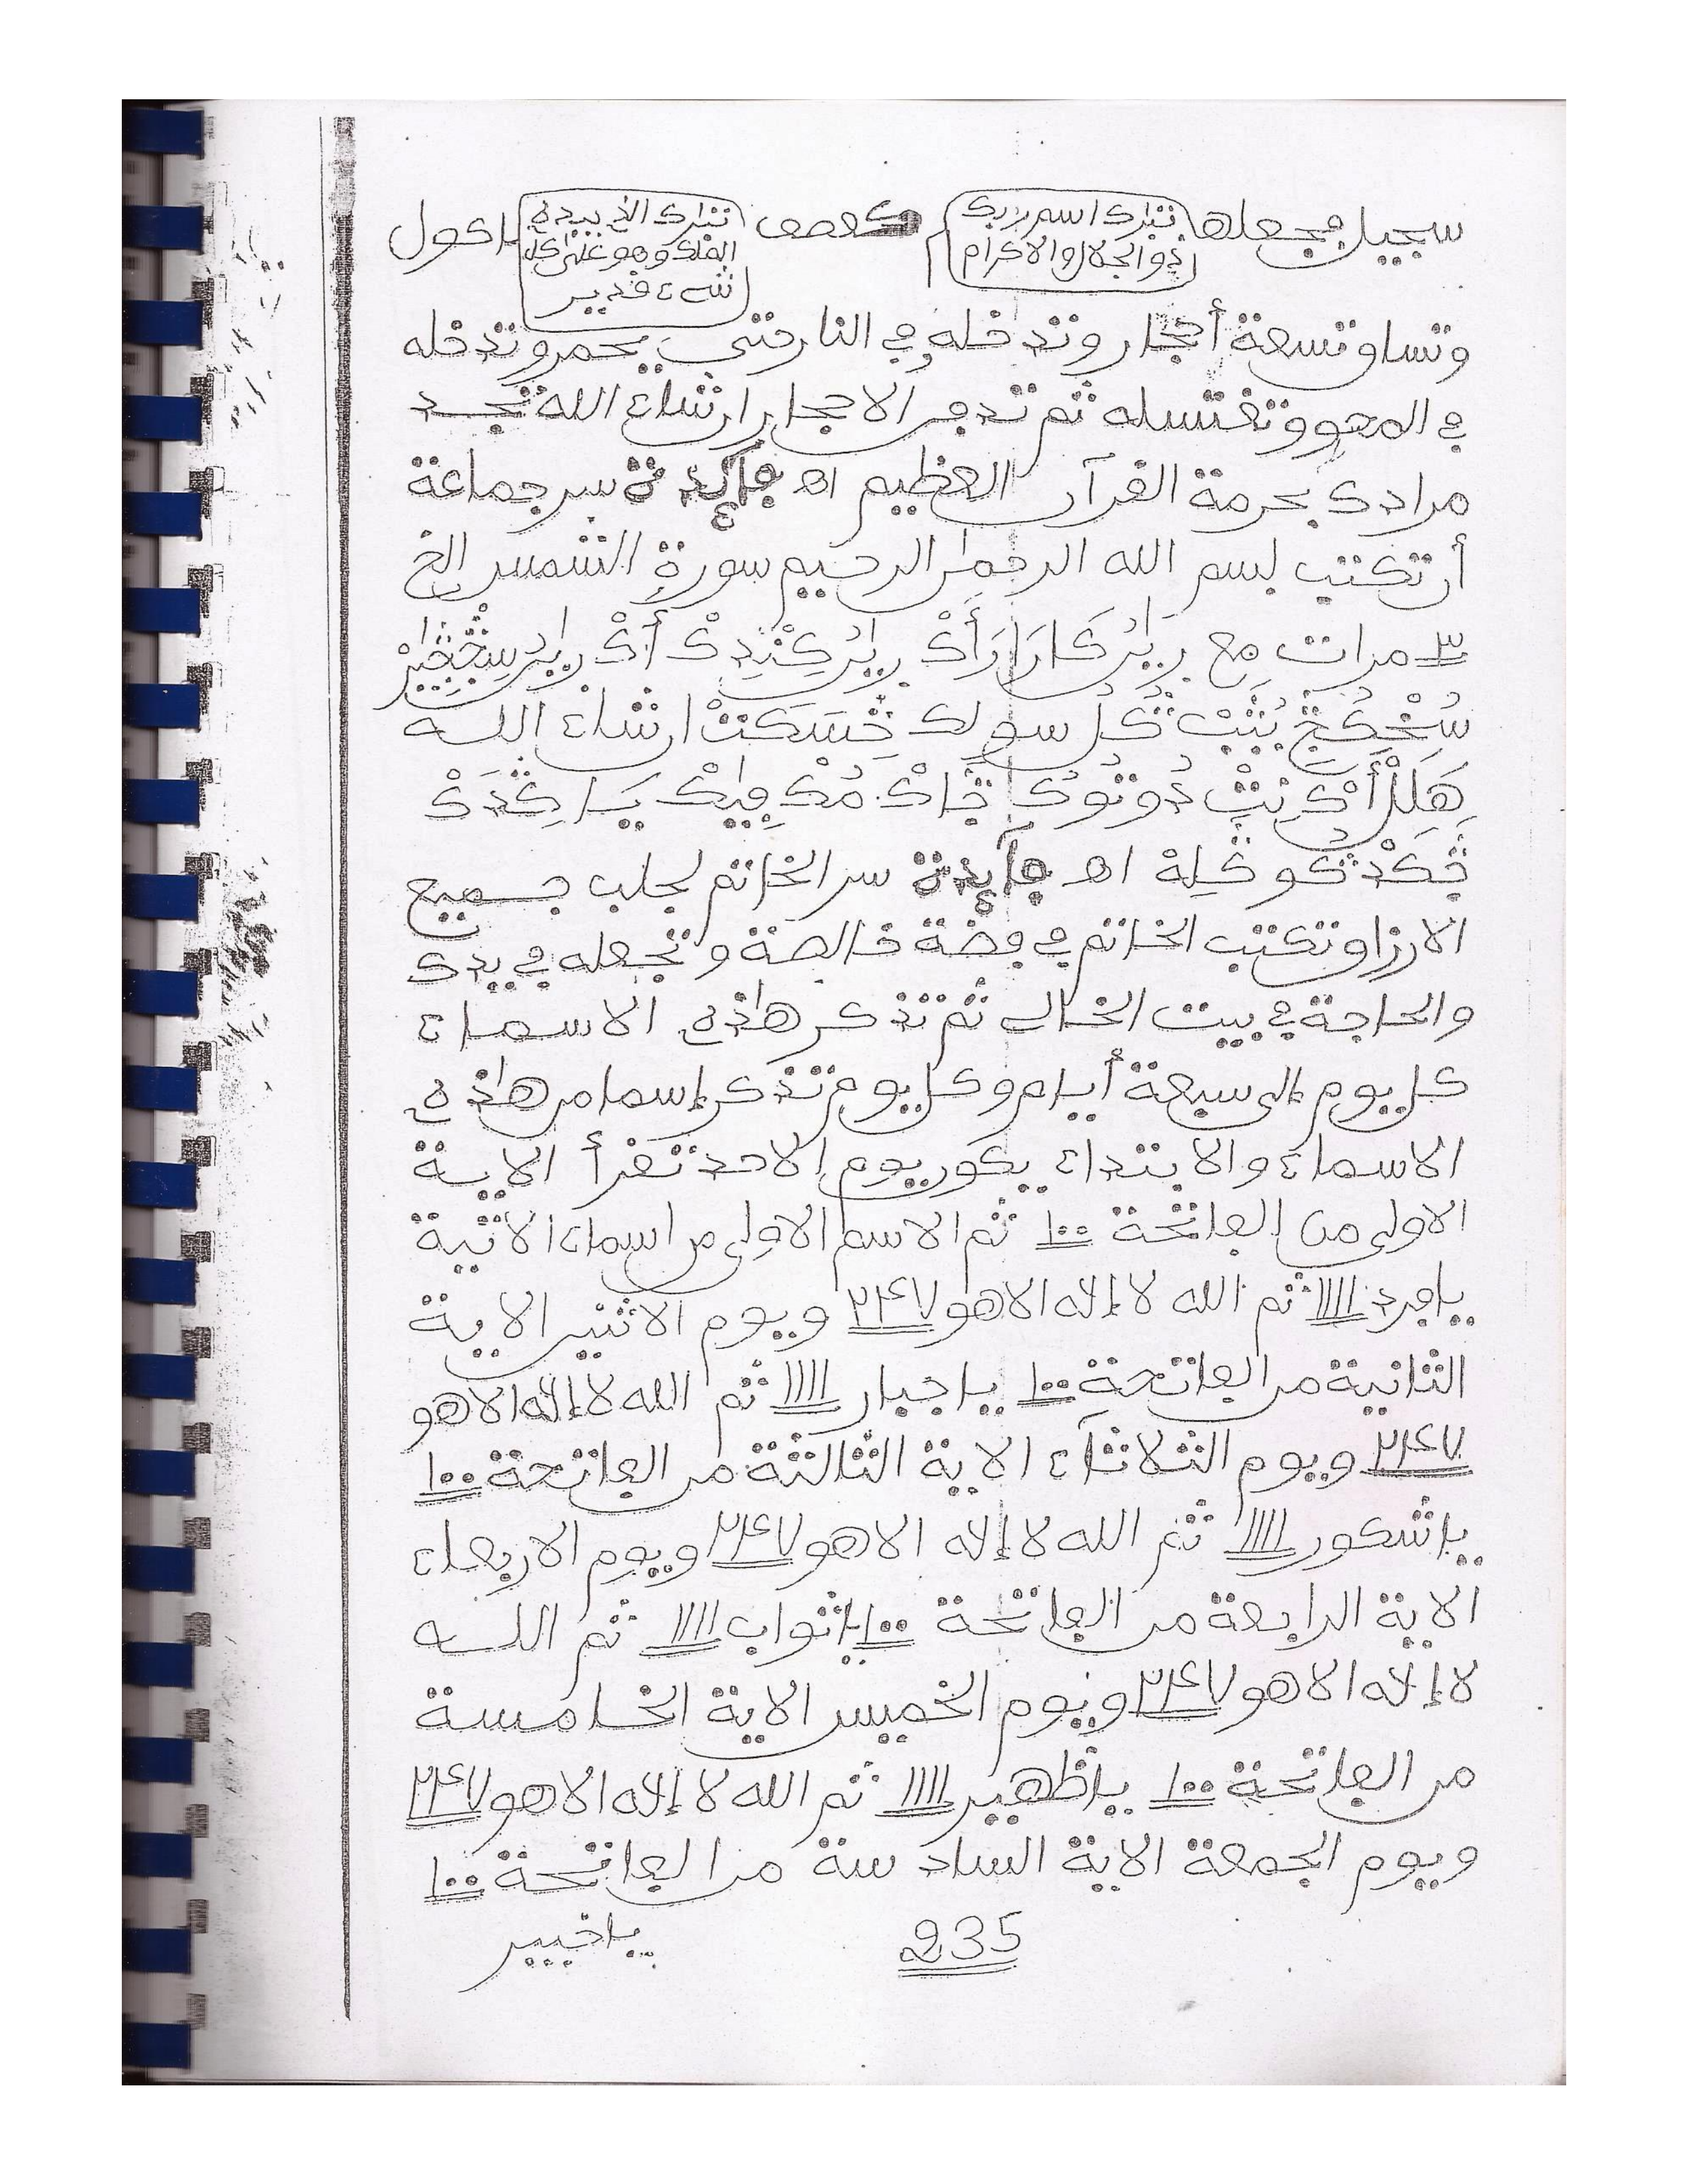 سجيل فجعله تبٰرك اسم ربك ذو الجلال والاكرام كعصف تبٰرك الذ بيده الملك وهو علىٰ كل شےء قدير ماكول
وتساو تسعة أحجار وتدخله في النار حتي يحمر وتدخله
في المهو وتغتسله ثم تدفن الاحجار ان شاء الله تجد
مرادك بحرمة القرآن العظيم اه فآئدة سر جماعة
أن تكتب بسم الله الرحمٰن الرحيم سورة الشمس الخ
٣ مرات مع
سولك ان شاء الله
اه فآئدة سر الخاتم لجلب جميع
الارزاق تكتب الخاتم في فضة خالصة وتجعله في يدك
والحاجة في بيت الخالي ثم تذكر هٰذه الاسماء
كل يوم إلى سبعة أيام وكل يوم تذكر إسما من هٰذه
الاسماء والابتداء يكون يوم الاحد تقرأ الاية
الاولى من الفاتحة ١٠٠ ثم الاسم الاولى من اسماء الاتية
يا فرد ١١١١ ثم الله لا إلٰه الا هو ٢٤٧ ويوم الاثنين الاية
الثانية من الفاتحة ١٠٠ يا جبار ١١١١ ثم الله لا إلٰه الا هو
٢٤٧ ويوم الثلاثآء الاية الثالثة من الفاتحة ١٠٠
يا شكور ١١١١ ثم الله لا إلٰه الا هو ٢٤٧ ويوم الاربعاء
الاية الرابعة من الفاتحة ١٠٠ يا ثواب ١١١١ ثم الله
لا إلٰه الا هو ٢٤٧ ويوم الخميس الاية الخامسة
من الفاتحة ١٠٠ يا ظهير ١١١١ ثم الله لا إلٰه الا هو ٢٤٧
ويوم الجمعة الاية السادسة من الفاتحة ١٠٠
235 يا خبير